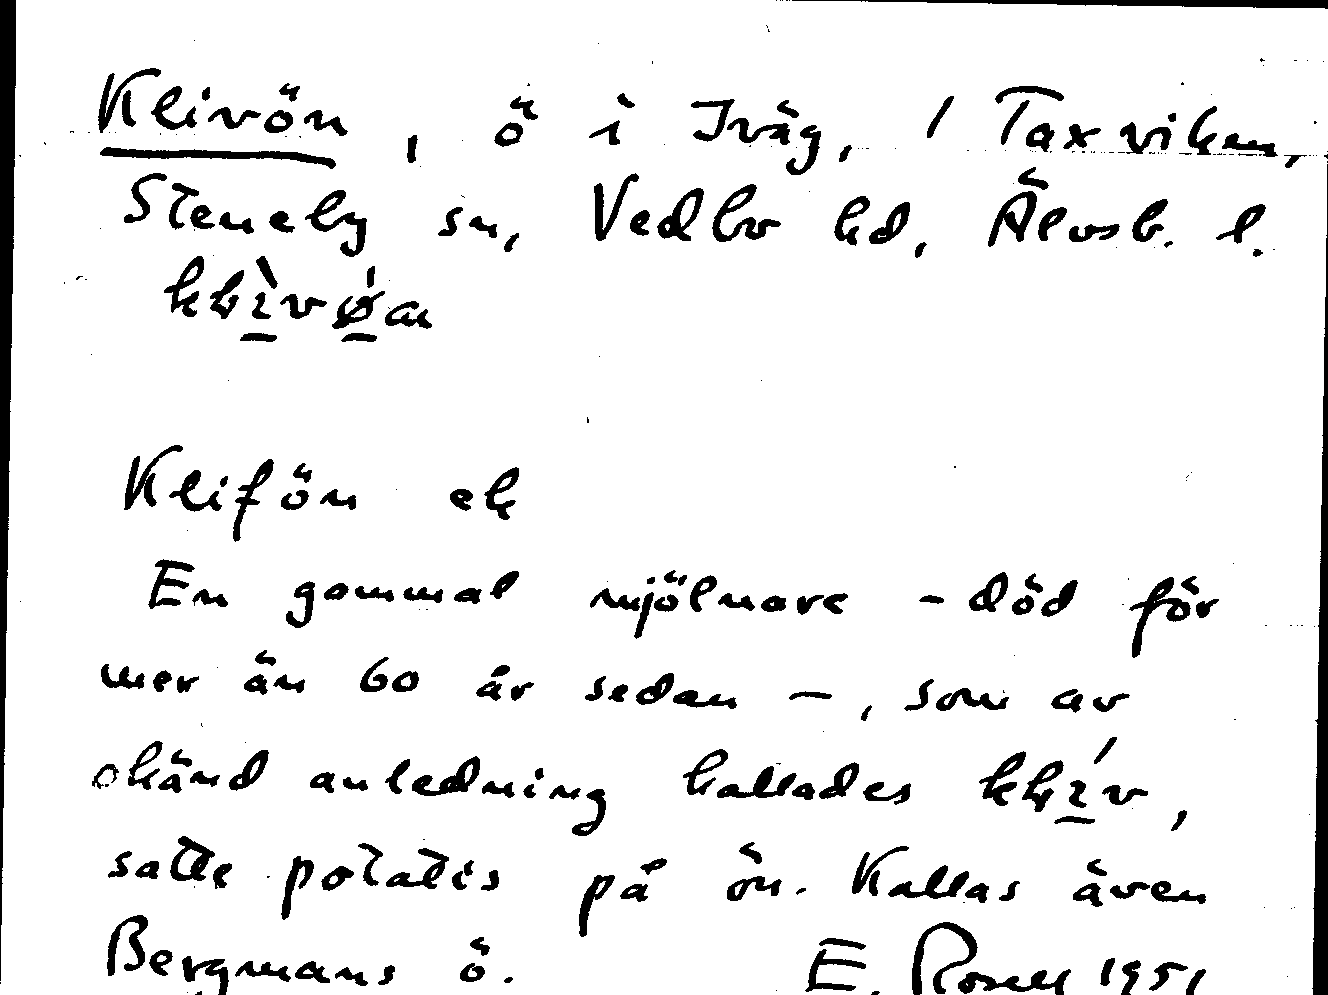 Klivön, ö i Iväg, / Taxviken,
Steneby sn, Vedbo hd, Älvsb. l.
Klifön ek
En gammal mjölnare - död för
mer än 60 år sedan -, som av
okänd anledning kallades
satte potatis på ön. Kallas även
Bergmans ö. E. Rosell 1951